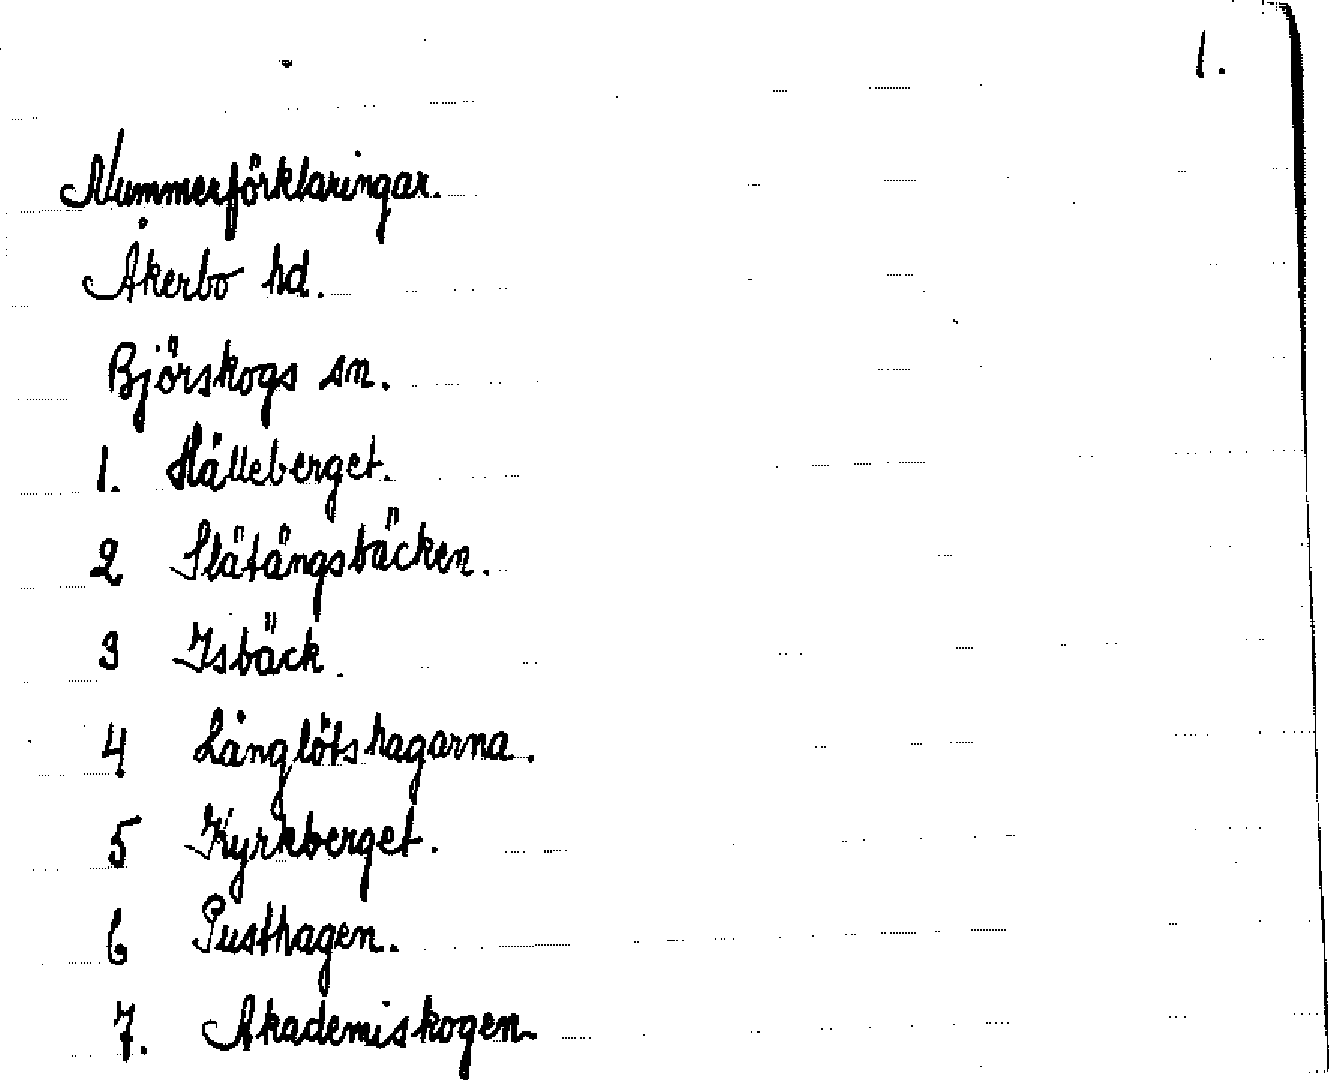 1.
Nummerförklaringar.
Åkerbo hd.
Björskogs sn.
1. Hälleberget.
2 Slätängsbäcken.
3 Isbäck.
4 Långlötshagarna.
5 Kyrkberget.
6 Pusthagen.
7. Akademiskogen